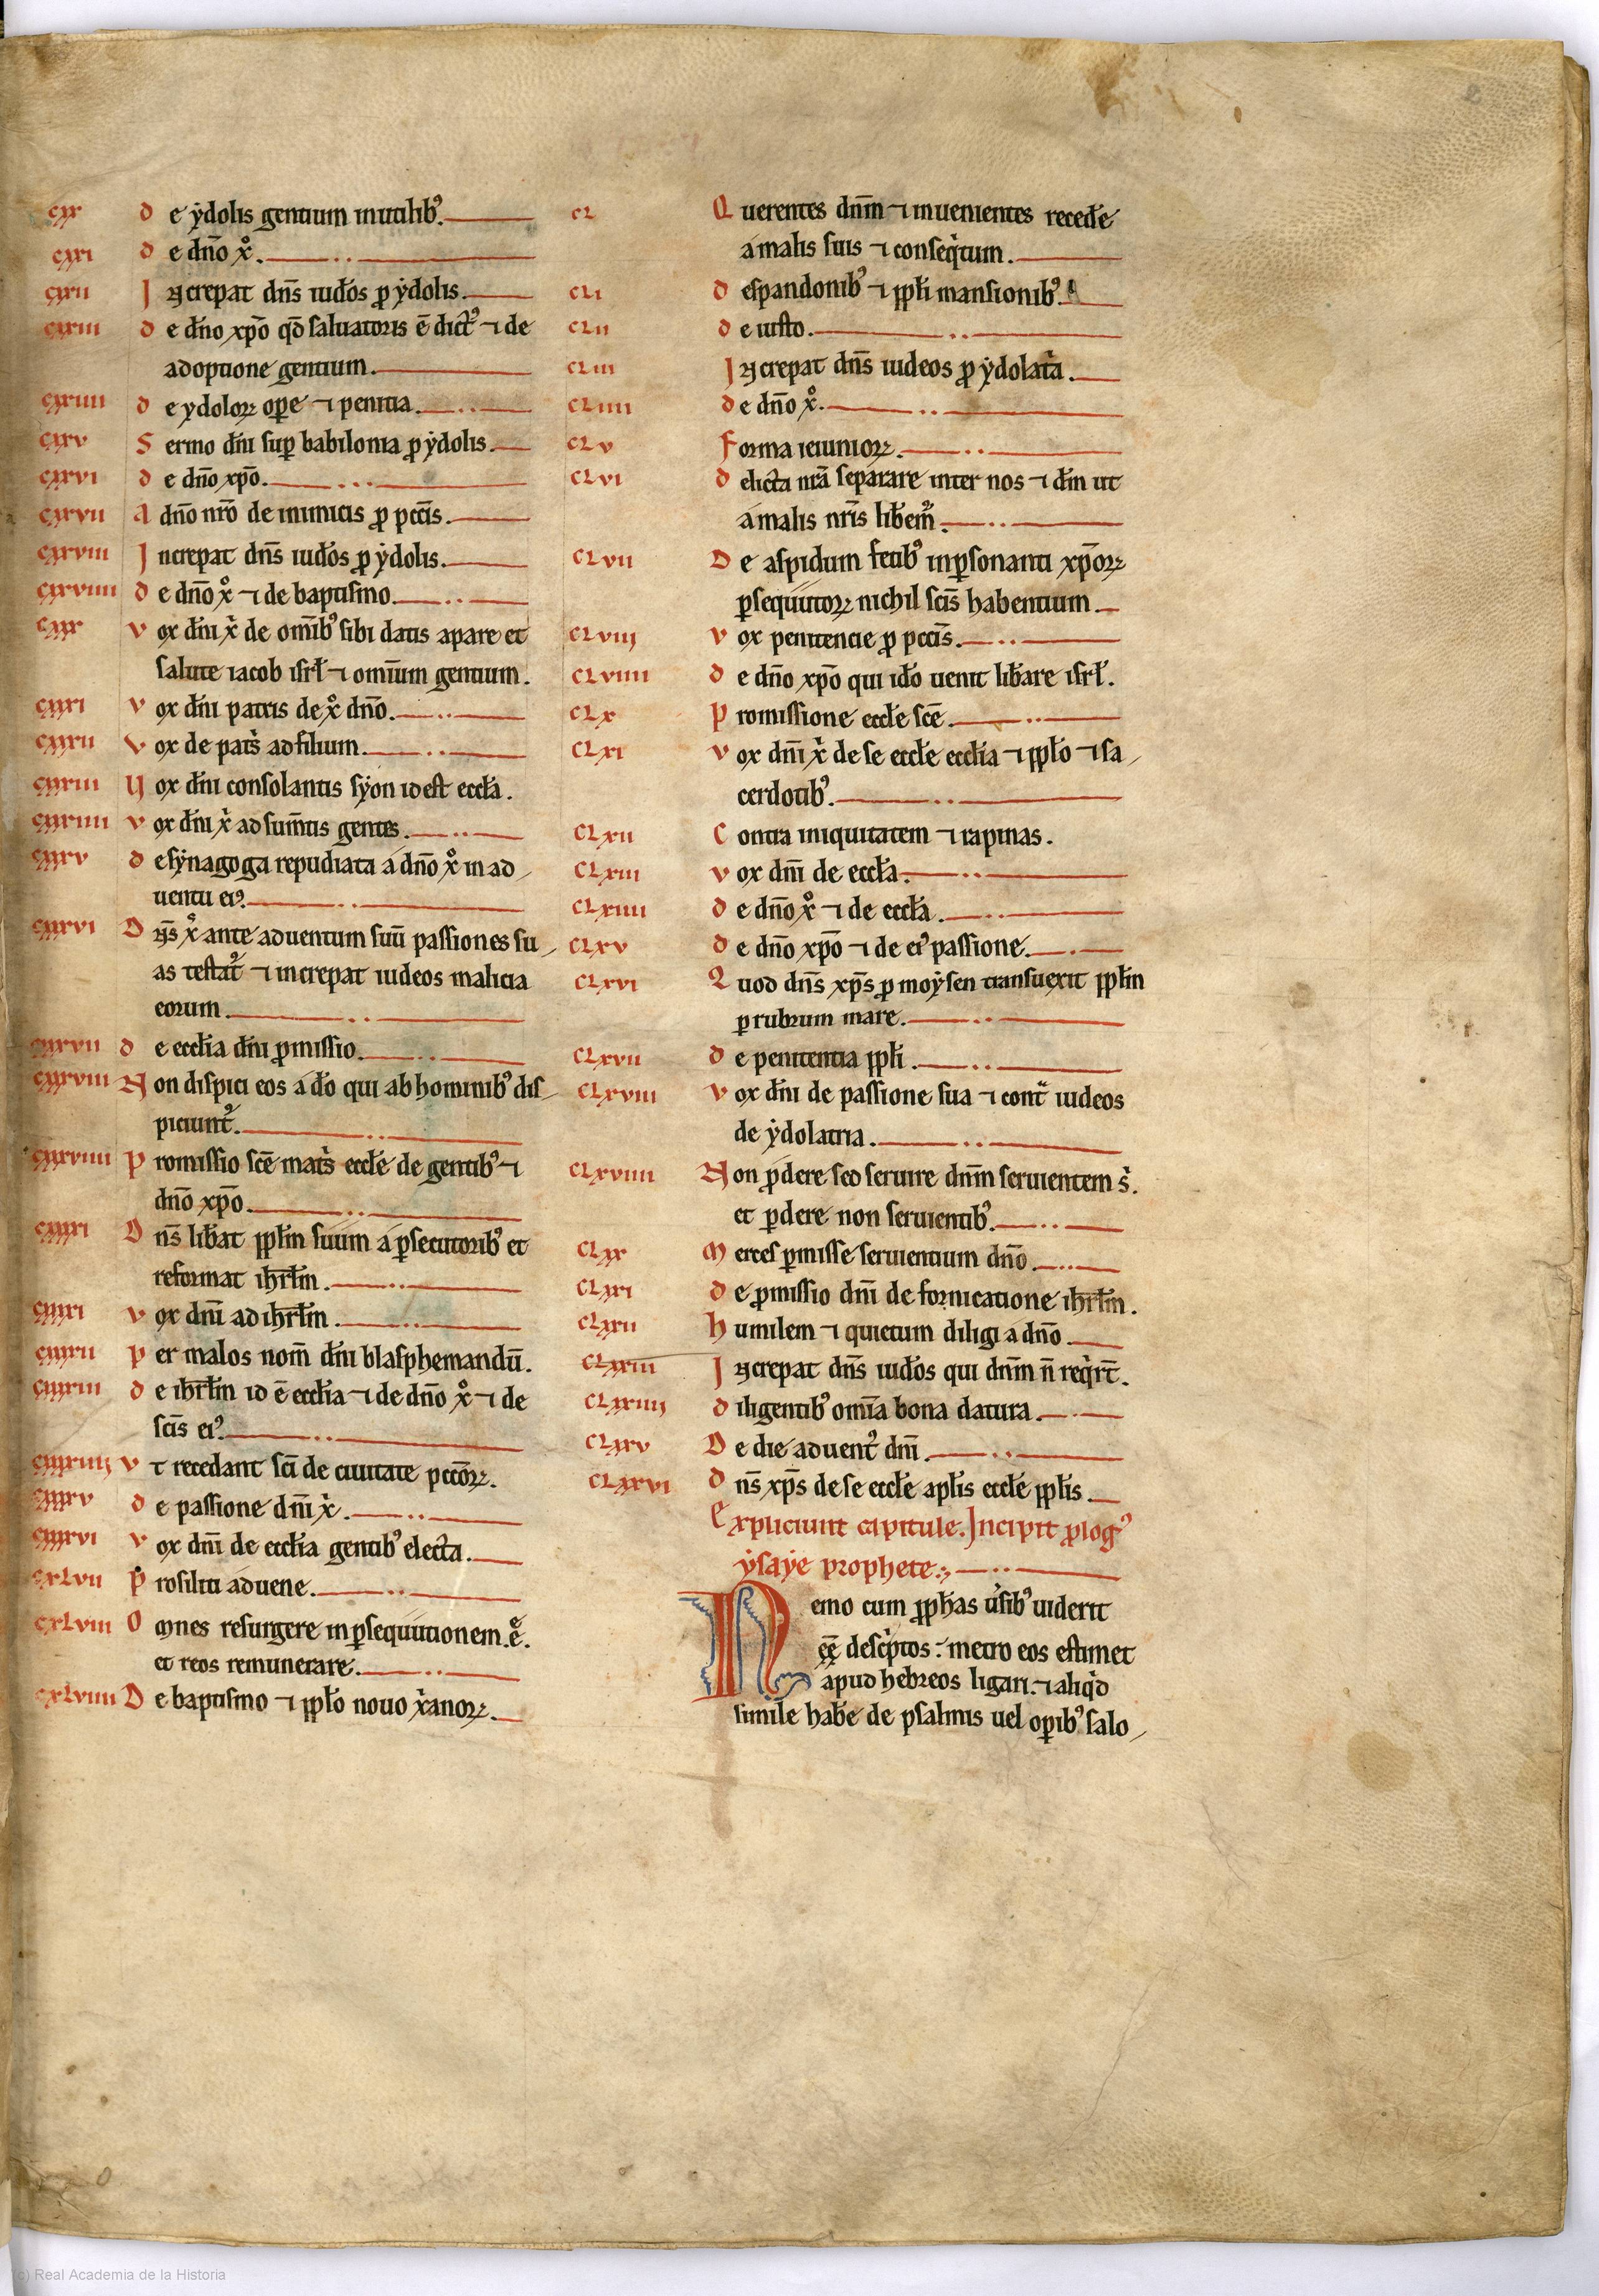 cxx De ẏdolis gentium inutilibꝰ.
cxxi De dn̄o xº.
cxxii Increpat dn̄s iud̄os ꝓ ẏdolis.
cxxiii De dn̄o xp̄o qd̄ saluatoris ē dict̓ ⁊ de
adoptione gentium.
cxxiiii De ydoloꝝ oꝑe ⁊ penitia.
cxxv Sermo dn̄i suꝑ babilonia ꝓ ẏdolis.
cxxvi De dn̄o xp̄o.
cxxvii A dn̄o nr̄o de inimicis ꝓ pcc̄is.
cxxviii Increpat dn̄s iud̄os ꝓ ẏdolis.
cxxviiii De dn̄o xº ⁊ de baptismo.
cxxx Vox dn̄i xⁱ de om̄ibꝰ sibi datis apare et
salute iacob isrł ⁊ omīum gentium.
cxxxi Vox dn̄i patris de xº dn̄o.
cxxxii Vox de pat̓s ad filium.
cxxxiii Vox dn̄i consolantis sẏon id est ecc̄ła.
cxxxiiii Vox dn̄i xⁱ ad sum̄tis gentes.
cxxxv De sẏnagoga repudiata a dn̄o xº in ad
uentu eiꝰ.
cxxxvi Dn̄s xº ante aduentum suū passiones su
as testat̓ ⁊ increpat iudeos malicia
eorum.
cxxxvii De ecclia dn̄i ꝓmissio.
cxxxviii Non dispici eos a dō qui ab hominibꝰ dis
piciunt̓.
cxxxviiii Promissio sc̄e mat̓s eccłe de gentibꝰ ⁊
dn̄o xp̄o.
cxxxxi Dn̄s lib̄at pp̄łm suum a ꝑsecutoribꝰ et
reformat ihrłm.
cxxxxi Vox dn̄i ad ihrłm.
cxxxxii Per malos nom̄ dn̄i blasphemandū.
cxxxxiii De ihrłm id ē ecclia ⁊ de dn̄o xº ⁊ de
sc̄is eiꝰ.
cxxxxiiij Vt recedant sc̄i de ciuitate pcc̄oꝝ.
cxxxxv De passione dn̄i xⁱ.
cxxxxvi Vox dn̄i de ecclia gentibꝰ electa.
cxLvii Prosiliti aduene.
cxLviii Omnes resurgere in ꝑsequutionem.e̊.
et reos remunerare.
cxLviiii De baptismo ⁊ pp̄ło nouo xⁱanoꝝ.
cL Querentes dn̄m ⁊ inuenientes reced̄e
a malis suis ⁊ conseqⁱtum.
cLi De spandonibꝰ ⁊ pp̄łi mansionibꝰ.
cLii De iusto.
cLiii Increpat dn̄s iudeos ꝓ ẏdolat̓a.
cLiiii De dn̄o xº.
cLv Forma ieiunioꝝ.
cLvi Delicta nr̄a separare inter nos ⁊ dn̄m ut
a malis nr̄is lib̄em̓.
cLvii De aspidum fetibꝰ in ꝑsonanti xp̄oꝝ
ꝑsequutoꝝ nichil sc̄is habentium.
cLviij Vox penitencie ꝓ pcc̄is.
cLviiii De dn̄o xp̄o qui id̄o uenit lib̄are isrł.
cLx Promissione eccłe sc̄e.
cLxi Vox dn̄i xⁱ de se eccłe ecclia ⁊ pp̄ło ⁊ sa
cerdotibꝰ.
cLxii Contra iniquitatem ⁊ rapinas.
cLxiii Vox dn̄i de eccła.
cLxiiii De dn̄o xº ⁊ de eccła.
cLxv De dn̄o xp̄o ⁊ de eiꝰ passione.
cLxvi Quod dn̄s xp̄s ꝑ moẏsen transuexit pp̄łm
ꝑ rubrum mare.
cLxvii De penitentia pp̄łi.
cLxviii Vox dn̄i de passione sua ⁊ cont̄ iudeos
de ẏdolatria.
cLxviiii Non ꝑdere sed seruire dn̄m seruientem s̓.
et ꝑdere non seruientibꝰ.
cLxx Merces ꝓmisse seruientium dn̄o.
cLxxi De ꝓmissio dn̄i de fornicatione ihrłm.
cLxxii Humilem ⁊ quietum diligi a dn̄o.
cLxxiii Increpat dn̄s iud̄os qui dn̄m n̄ reqⁱrt̄.
cLxxiiij Diligentibꝰ om̄ia bona datura.
cLxxv De die aduent̓ dn̄i.
cLxxvi Dn̄s xp̄s de se eccłe apłis eccłe pp̄łis.
Expliciunt capitule. Incipit ꝓlogꝰ
ẏsaẏe prophete.
Nemo cum ꝓph̄as u̓sibꝰ uiderit
ee̅ descⁱptos: metro eos estimet
apud hebreos ligari. ⁊ aliqⁱd
simile hab̄e de psalmis uel oꝑibꝰ salo